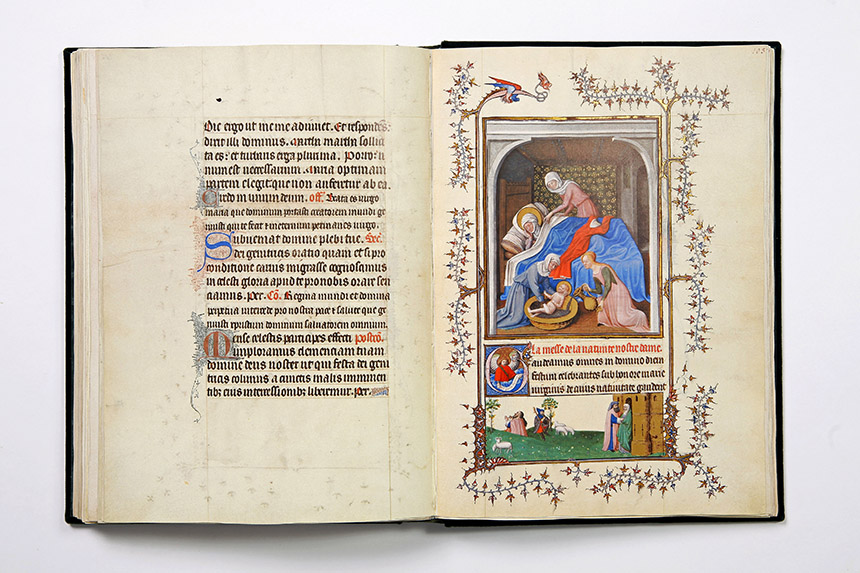 Dic ergo ut me me adiuuet. Et respondens
dixit illi dominus. Martha martha sollici
ta es: et turbaris erga plurima. Porro u
num est necessarium. Maria optimam
partem elegit: que non auferetur ab ea.
Credo in unum deum. off. Beata es uirgo
maria que dominum portasti creatorem mundi ge
nuisti qui te fecit et in eternum permanes uirgo.
Subueniat domine plebi tue. Sec.
dei genitricis oratio quam etsi pro
conditione carnis migrasse cognoscimus
in celesti gloria apud te pro nobis orare sen
ciamus. Per. Co. Regina mundi et domina
perpetua intercede pro nostra pace et salute que ge
nuisti christum dominum saluatorem omnium.
Mense celestis participes effecti postco.
imploramus clemenciam tuam
domine deus noster ut qui festa dei geni
tricis colimus a cunctis malis imminen
tibus eius intercessionibus liberemur. Per.
La messe de la natiuite nostre dame.
Gaudeamus omnes in domino diem
festum celebrantes sub honore marie
uirginis de cuius natiuitate gaudent